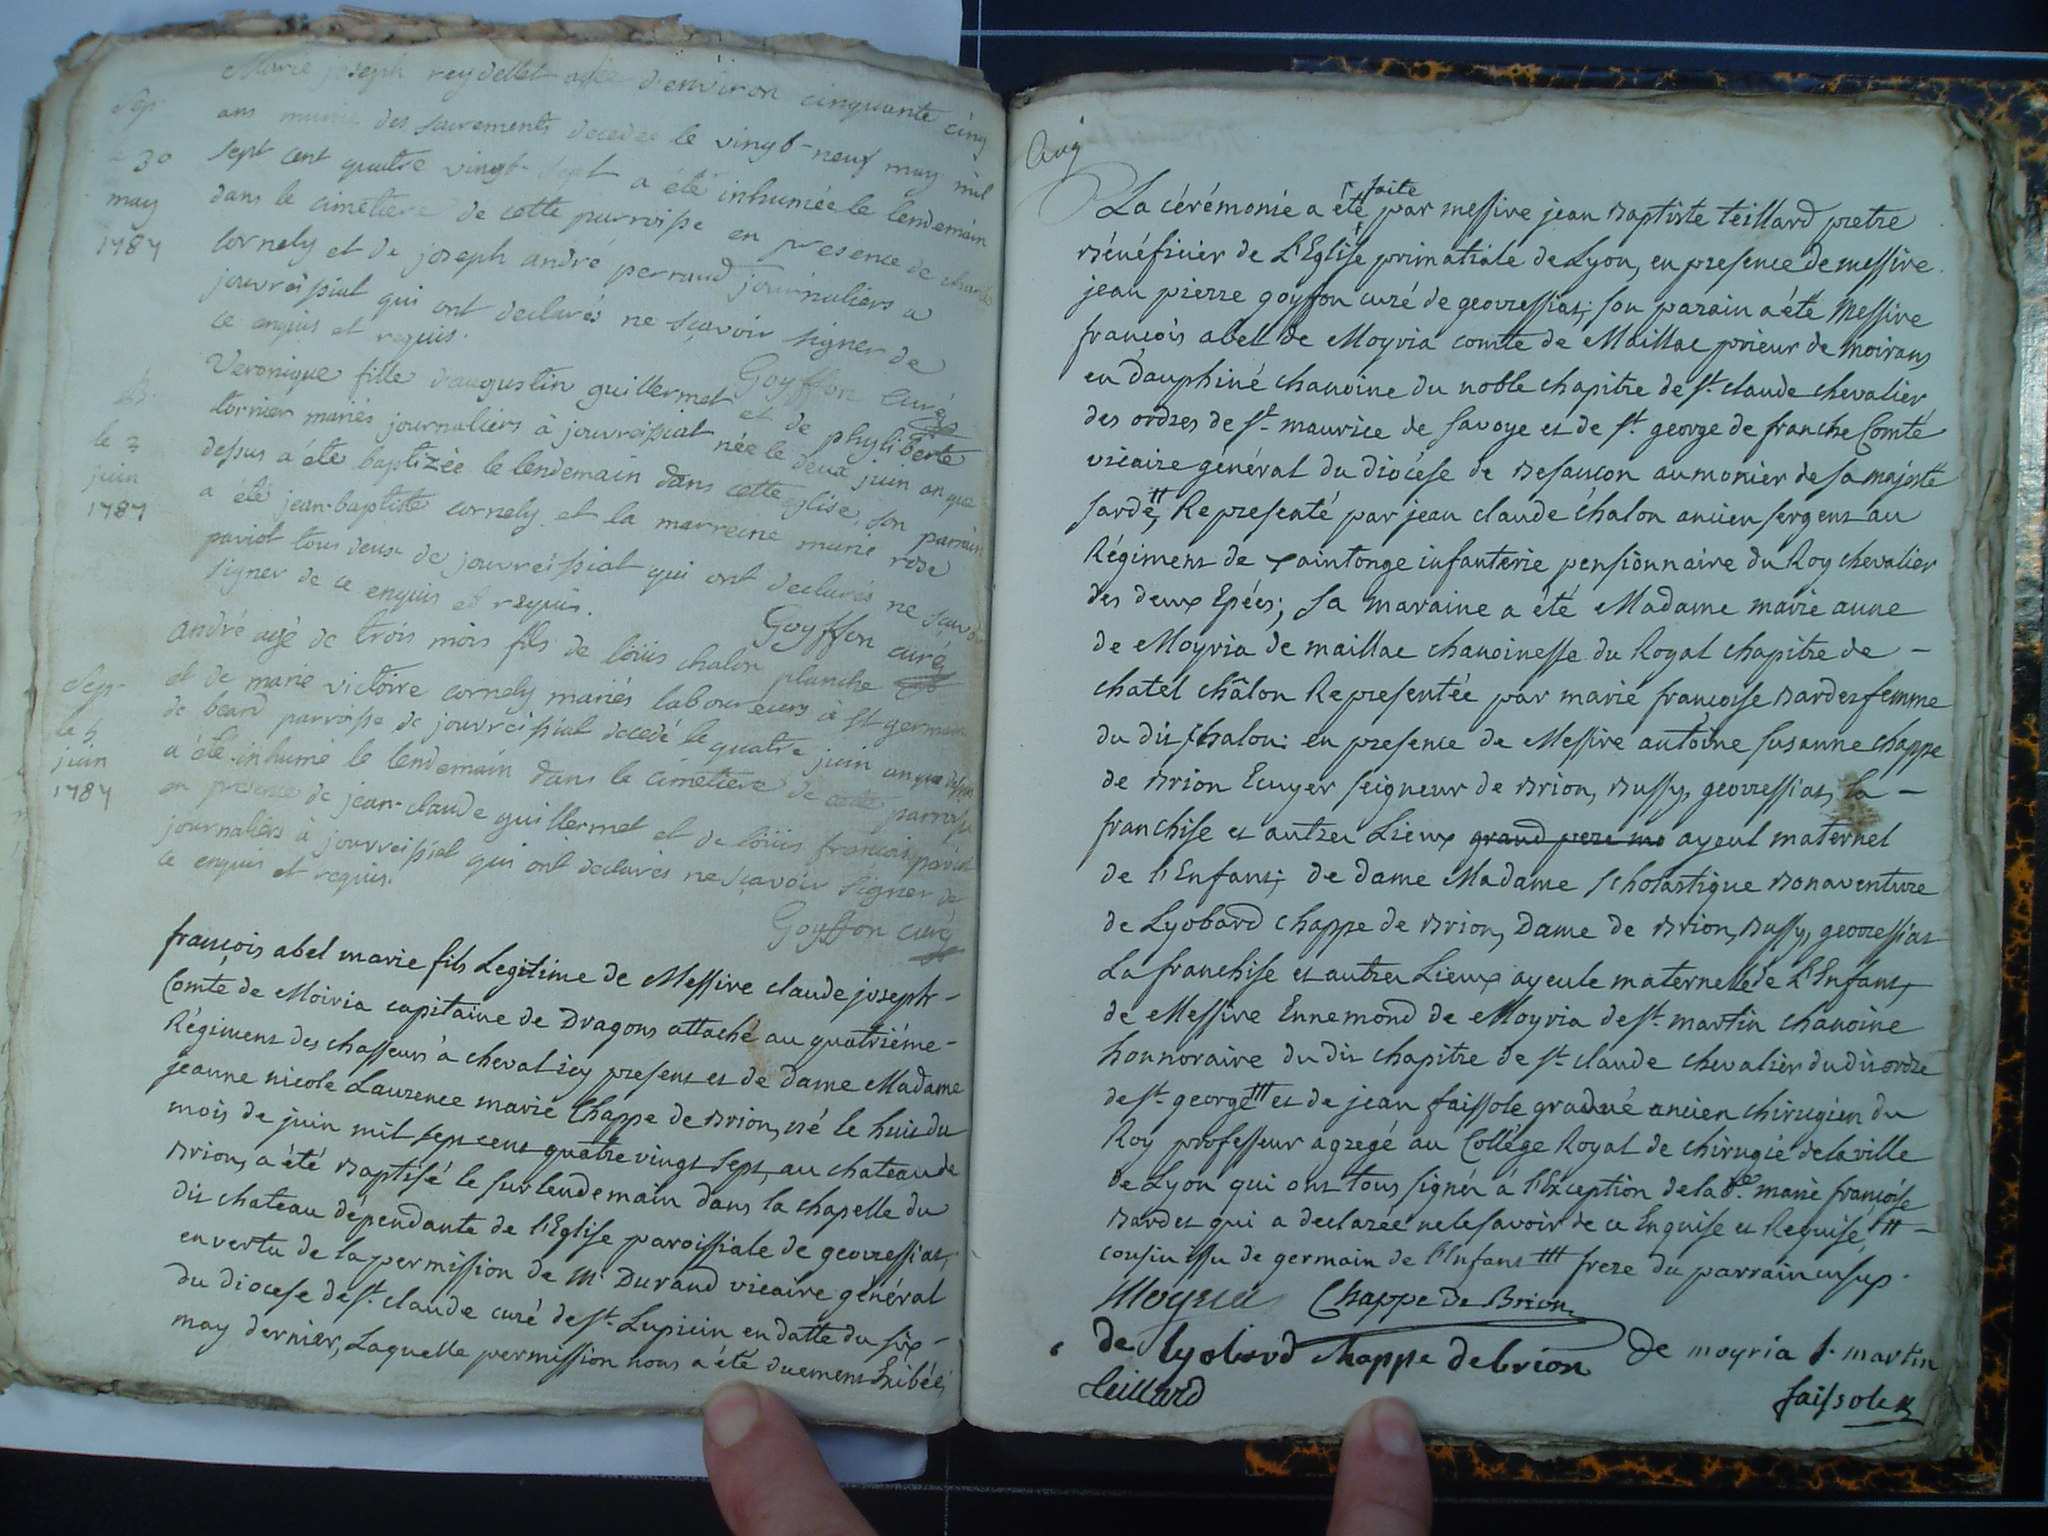 Marie joseph reydellet agée d'environ cinquante cinq
ans munie des sacrements decedée le vingt-neuf may mil
sept cent quatre vingt sept a été inhumée le lendemain
dans le cimetiere de cette parroisse en presence de
cornely et de joseph andré perraud journaliers a
jouvreissiat qui ont declarés ne sçavoir signer de
ce enquis et requis.
Goyffon curé
Sep.
30
may
1787
Veronique fille d'augustin guillermet et de phyliberte
tornier mariés journaliers à jouvreissiat née le deux juin an que
dessus a été baptizée le lendemain dans cette eglise, son parrain
a été jean-baptiste cornely et la marreine marie rose
paviot tous deux de jouvreissiat qui ont declarés ne sçavoir
signer de ce enquis et requis.
Goyffon curé
b.
le 3
juin
1787
andré agé de trois mois fils de loüis chalon planche
et de marie victoire cornely mariés laboureurs à st germain
de beard parroisse de jouvreissiat decedé le quatre juin an que dessus
a été inhumé le lendemain dans le cimetiere de cette parroisse
en presence de jean-claude guillermet et de loüis françois paviot
journaliers à jouvreissiat qui ont declarés ne sçavoir signer de
ce enquis et requis.
Goyffon curé
Sep.
le 5
juin
1787
françois abel marie fils Legitime de Messire claude joseph-
Comte de Moiria capitaine de Dragons attaché au quatriéme-
Régiment des chasseurs à cheval icy present et de dame Madame
jeanne nicole Laurence marie Chappe de Brion, né le huit du
mois de juin mil sept cent quatre vingt sept, au chateau de
Brion, a été Baptisé le surlendemain dans la chapelle du
dit chateau dépendante de l'Eglise paroissiale de geovressiat,
en vertu de la permission de Mr Durand vicaire général
du diocese de st. claude curé de st. Lupicin en datte du six-
may dernier, Laquelle permission nous a été duement Exibée;
La cérémonie a été faite par messire jean Baptiste teillard pretre
Bénéficier de L'Eglise primatiale de Lyon, en presence de messire
jean pierre goyffon curé de geovressiat; son parain a été Messire
françois abel de Moyria comte de Maillac prieur de moirans
en Dauphiné chanoine du noble chapitre de st. claude chevalier
des ordres de st. maurice de Savoye et de st. george de franche Comté
vicaire général du diocese de Besançon aumonier de sa majesté
sarde, # Representé par jean claude chalon ancien sergent au
Régiment de xaintonge infanterie pensionnaire du Roy chevalier
des deux Epées; sa maraine a été Madame marie anne
de Moyria de maillac chanoinesse du Royal chapitre de -
chatel châlon Representée par marie françoise Bardet femme
du dit Chalon: en presence de Messire antoine susanne chappe
de Brion Ecuyer seigneur de Brion, Bussy, geovressiat, la -
franchise et autres Lieux grand pere ma ayeul maternel
de l'Enfant; de dame Madame scholastique Bonaventure
de Lyobard chappe de Brion, Dame de Brion, Bussy, geovressiat
La franchise et autres Lieux ayeule maternelle de L'Enfant,
de Messire Ennemond de Moyria de st. martin chanoine
honnoraire du dit chapitre de st. claude chevalier du dit ordre
de st. george ### et de jean faissole gradué ancien chirugien du
Roy professeur agregé au Collége Royal de chirugie de la ville
de Lyon qui ont tous signés à l'Exception de la de. marie françoise
Bardet qui a declarée ne le savoir de ce Enquise et Requise, # -
cousin issu de germain de l'Enfant ### frere du parrain susd.
Moyria Chappe de Brion
de lyobard chappe debrion de moyria s. martin
teillard
faissole